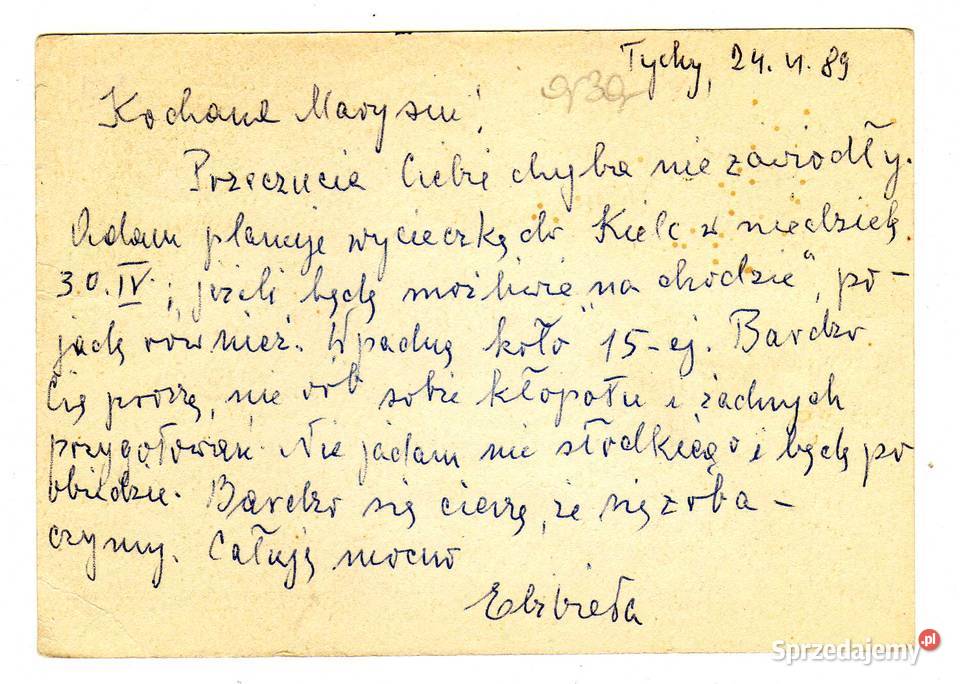 Tychy, 24. VI. 89
939
Kochana Marysiu!
Przeczucia Ciebie chyba nie zawiodły.
Adam planuje wycieczkę do Kielc w niedzielę
30.IV.; jeżeli będę możliwie "na chodzie", po-
jadę również. Wpadnę koło 15-ej. Bardzo
Cię proszę, nie rób sobie kłopotu i żadnych
przygotowań. Nie jadam nic słodkiego i będę po
obiedzie. Bardzo się cieszę, że się zoba-
czymy. Całuję mocno
Elżbieta
Sprzedajemy.pl